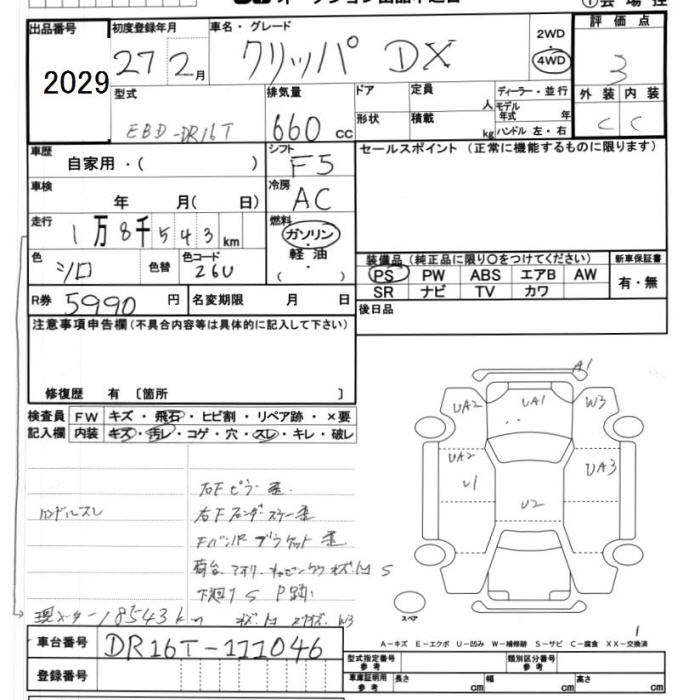 出品番号 初度登録年月 車名・グレード 評価点
2029 27 2月 クリッパ DX 2WD 4WD 3
型式 排気量 ドア 定員 人 ディーラー・並行 外装 内装
EBD-DR16T 660cc 形状 積載 kg モデル年式 年 ハンドル 左・右 C C
車歴 自家用・( ) シフト F5 セールスポイント (正常に機能するものに限ります)
車検 年 月( 日) 冷房 AC
走行 1万8千543km 燃料 ガソリン・軽油 ( )
色 シロ 色替 色コード 26U
装備品 (純正品に限り〇をつけてください) 新車保証書
PS PW ABS エアB AW 有・無
SR ナビ TV カワ
R券 5990円 名変期限 月 日 後日品
注意事項申告欄(不具合内容等は具体的に記入して下さい)
修復歴 有 〔箇所 〕
検査員 FW キズ・飛石・ヒビ割・リペア跡・×要
記入欄 内装 キズ・汚レ・コゲ・穴・スレ・キレ・破レ
A1
UA2 UA1 W3
UA2 UA3
U1
U2
右Fピラー歪
ハンドルスレ 右Fフェンダーステー歪
Fバンパブラケット歪
下廻りS P跡
現メーター18543km W3
スペア
1
A-キズ E-エクボ U-凹み W-補修跡 S-サビ C-腐食 XX-交換済
車台番号 DR16T-111046
型式指定番号参考 類別区分番号参考
登録番号 車庫証明用参考 長さ cm 幅 cm 高さ cm